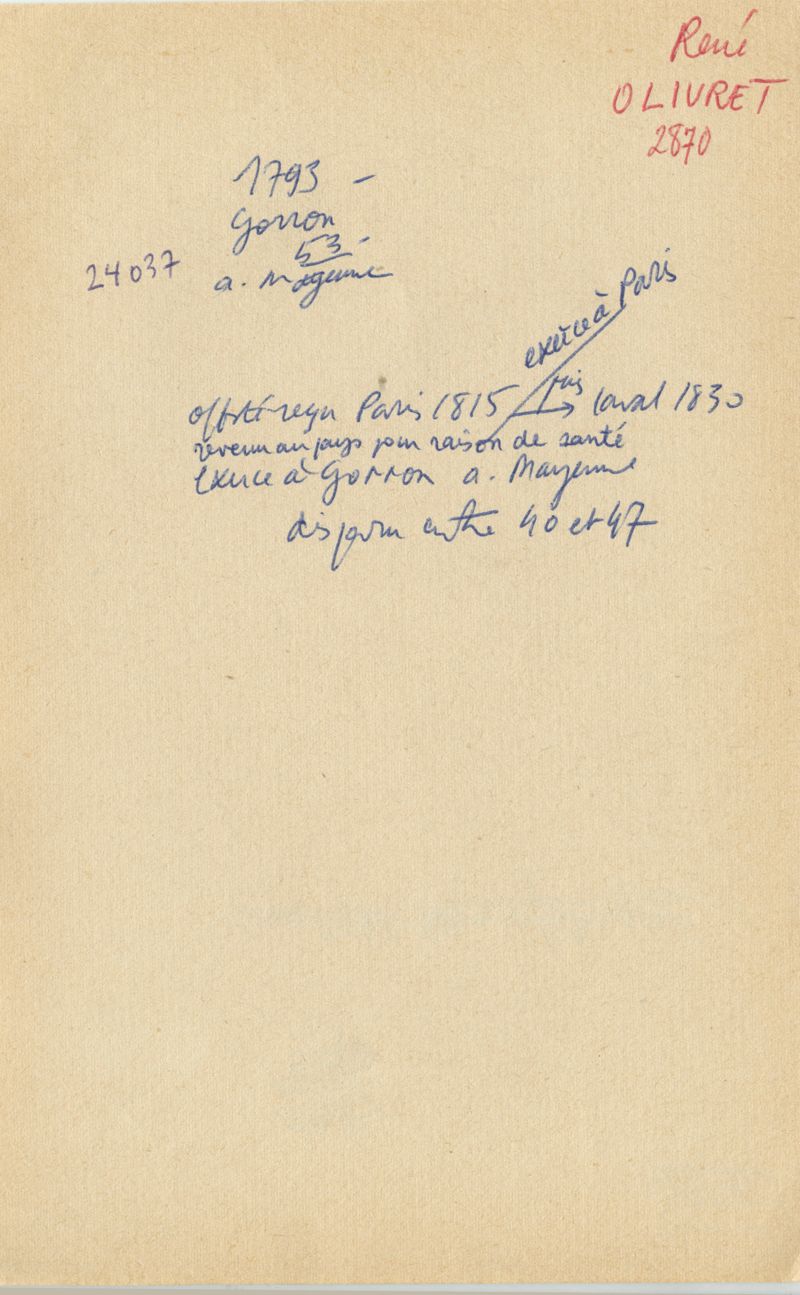 René
OLIVRET
2870
1793 -
Gorron
53 -
24037
a. Mayenne
exerce à Paris
offst reçu Paris 1815 → puis Laval 1830
revenu au pays pour raison de santé
exerce à Gorron a. Mayenne
disparu entre 40 et 47